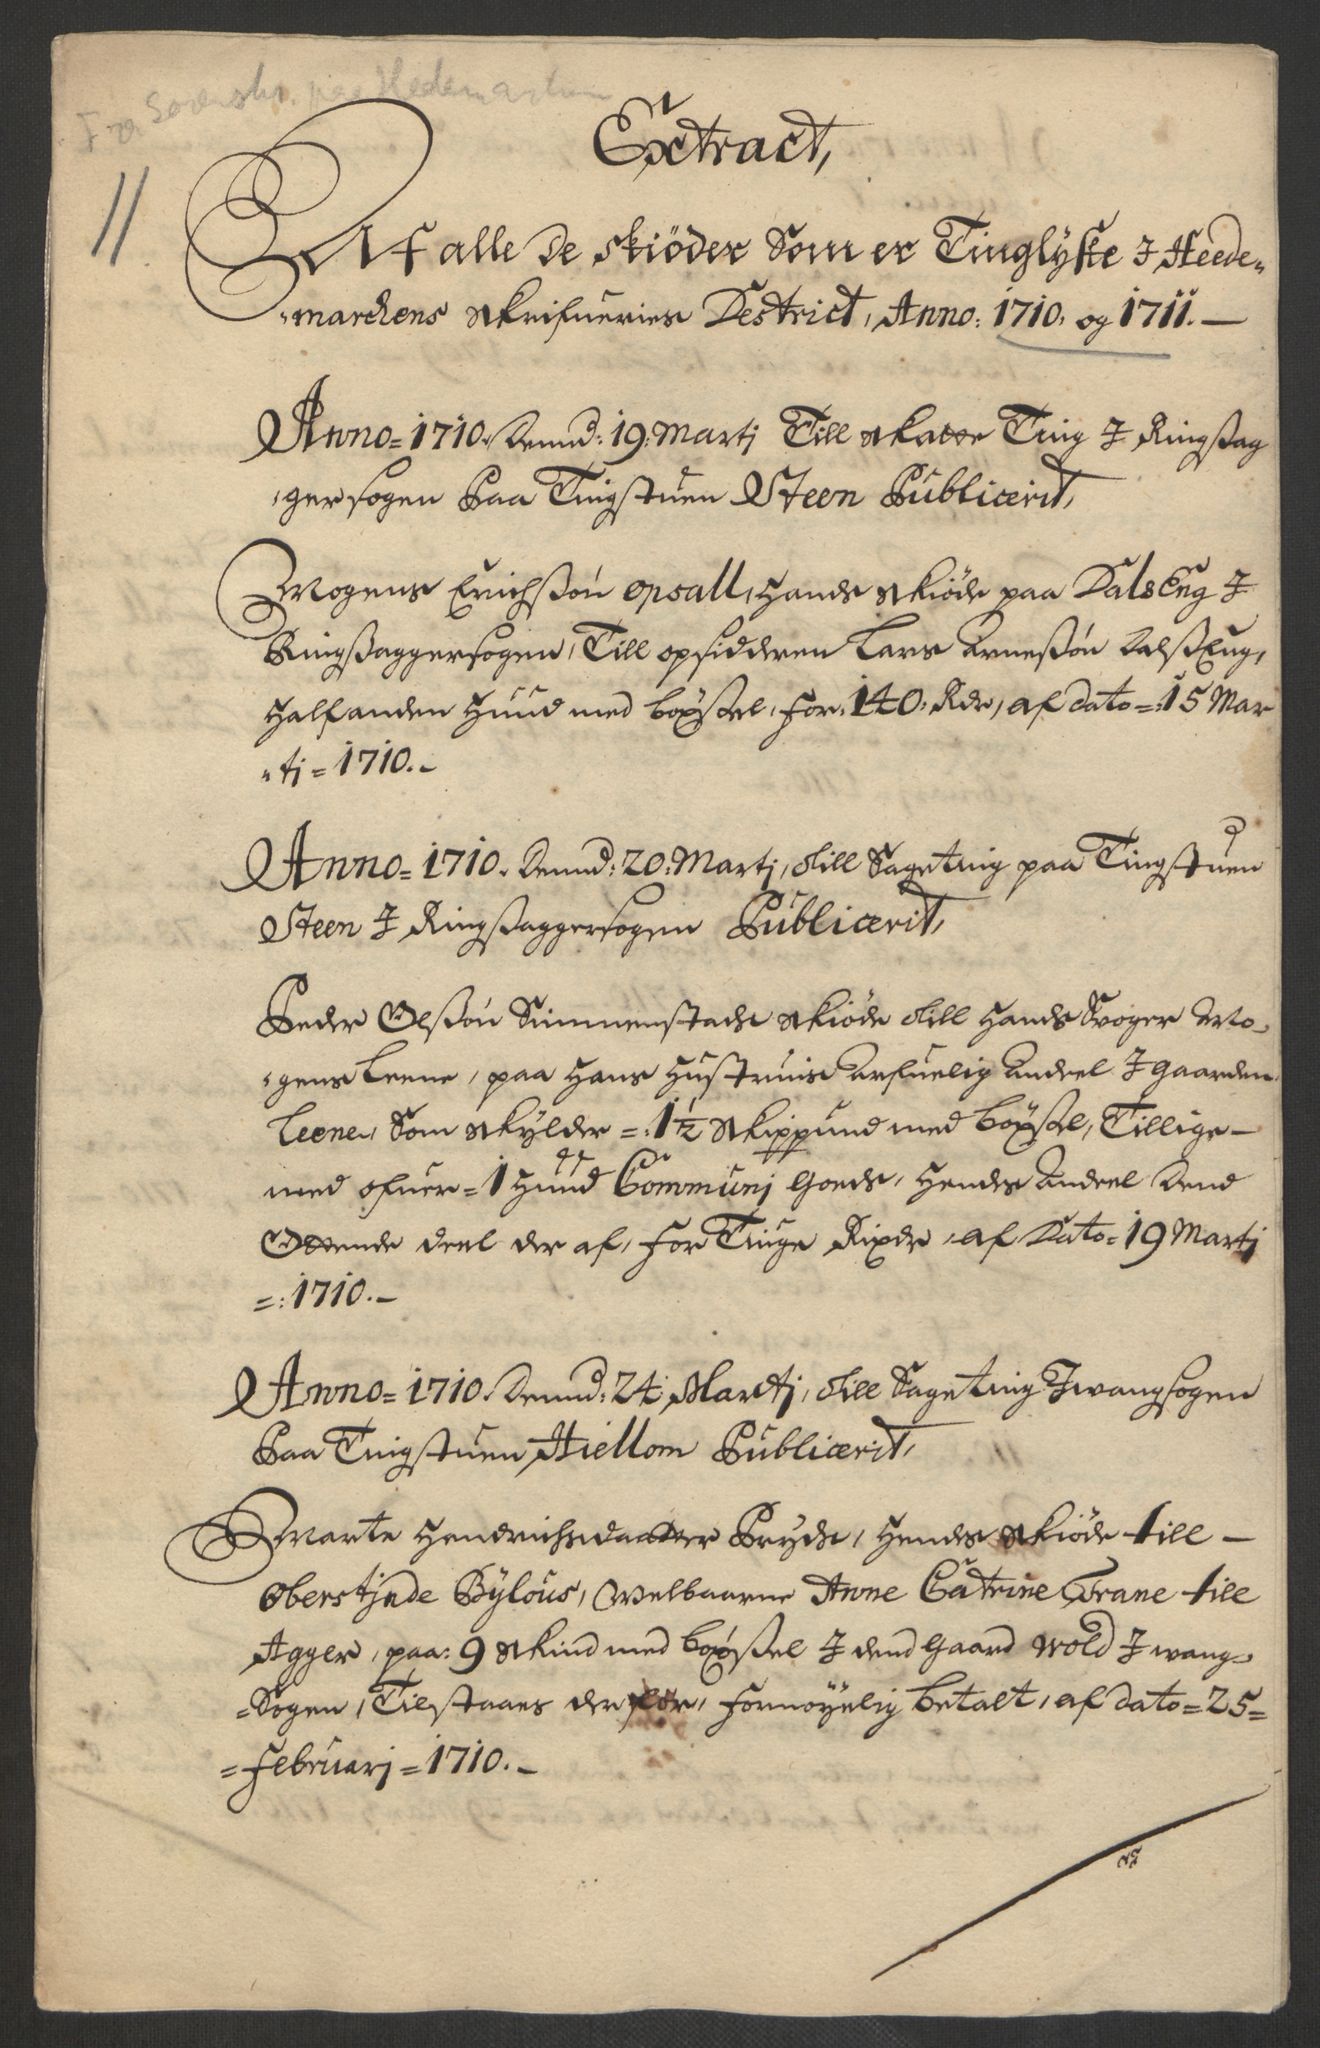 Fra Sorenskr. paa Hedemarken
11
Extract,
Af alle De skiöder Som er Tinglÿste I Heede„
„marchens Skrifueries Destrict, Anno: 1710, og 1711.—
Anno= 1710. Dennd: 19: Martj Till Skatte Ting I Ringßag
„gersogen Paa Tingstuen Steen Publicerit,
Mogens Erichßön opsall, Hands Skiöde paa Dalseng I
Ringßaggersogen, Till opsidderen Lars Arneßön Dalßeng,
Half anden Huud med böxsel, for, 140, Rdr, af dato =: 15 Mar
„tj = 1710.–
Anno= 1710. Dennd: 20: Martj, till Sageting paa Tingstuen
Steen I Ringßaggersogen Publicerit,
Peder Olßön Simmenstads Skiöde till Hands Svoger Mo„
„gens Leene, paa Hans Hustruis Arfuelig Andeel I Gaarden
Leene, Som Skÿlder =: 1½ Skippund med böxsel, Tillige–
med ofuer = 1 Huud Communj Goeds, Hendes Andeel Dend
Ottende deel der af, for Tiuge Rixdr, af Dato = 19 Martj
=: 1710.–
Anno= 1710. Dennd: 24: Martj, till Sageting I wangsogen
Paa Tingstuen Hiellom Publicerit,
Marte Hendrichsdaatter Pryds, Hendes Skiöde till –
Oberstjnde Bÿlous, Welbaarne Anne Catrine Trane till
Agger, paa: 9 Skind med böxsel I dend Gaard Wold I wang„
=Sogen, Tilstaaes derfor, fornöyelig betalt, af dato = 25 =
= Februarj = 1710.–